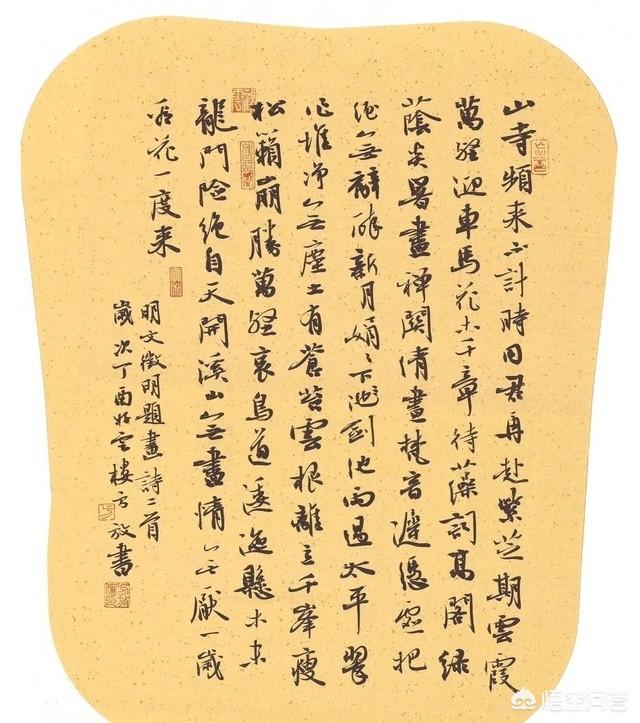 山寺頻来不計時同君再赴紫芝期雲霞
萬壑迎車馬花木千章待藻詞高閣緑
蔭炎暑盡禪関清晝梵音遲憑虚把
酒無辭醉新月娟〻下池劍池雨過太平翠
作堆净無塵土有蒼苔雲根離立千峯瘦
松籟崩騰萬壑哀鳥道逶迤懸木末
龍門險絶自天開溪山無盡情無厭一歲
看花一度来
明文徵明題畫詩二首
歲次丁酉雲樓方放書
悟空问答